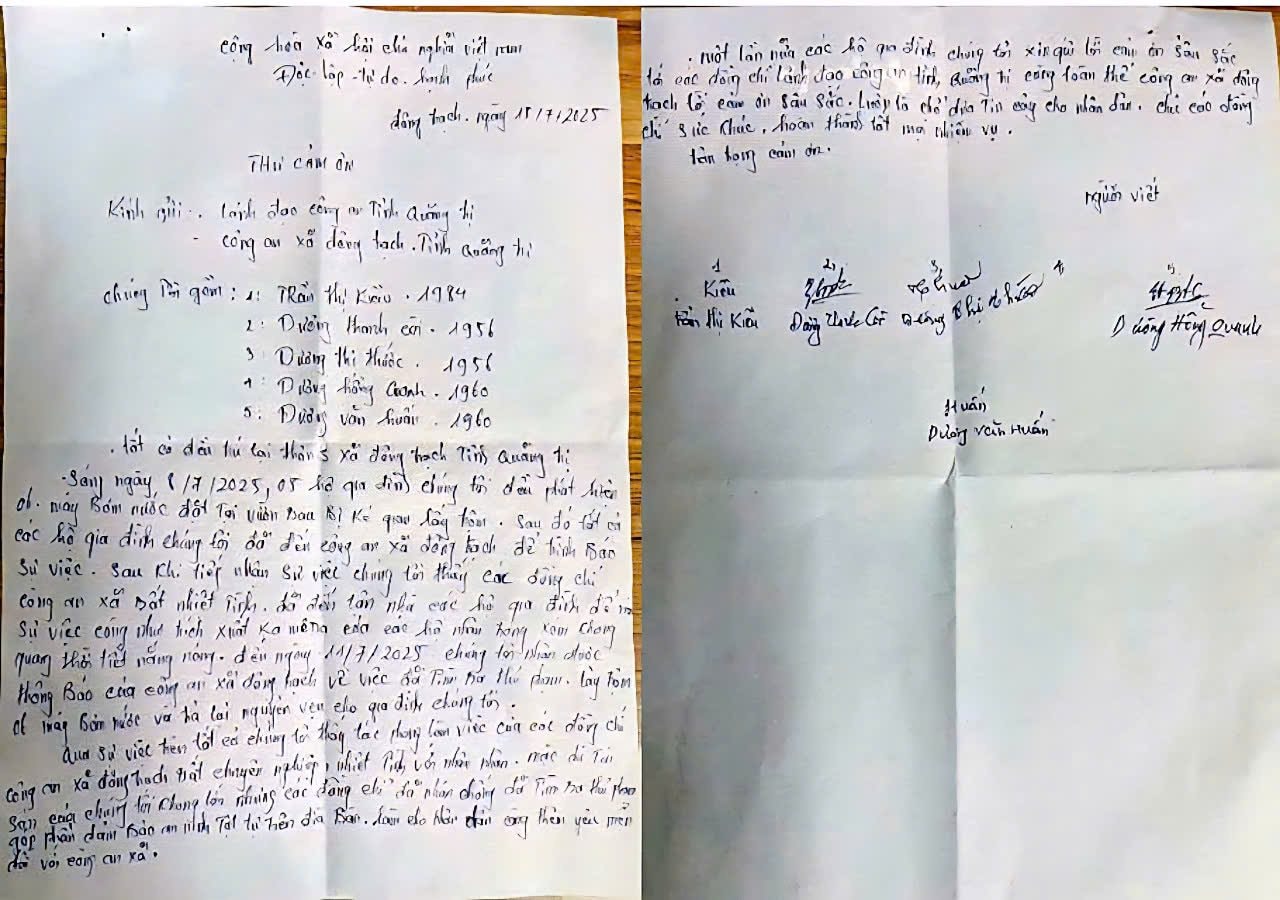 cộng hoà xã hội chủ nghĩa việt nam
Độc lập - tự do. hạnh phúc
đông trạch. ngày 15/7/2025
THƯ CẢM ƠN
Kính gửi. Lãnh đạo công an Tỉnh Quảng trị
- công an xã đông trạch. Tỉnh Quảng trị
chúng tôi gồm: 1: TRần thị Kiều. 1984
2: Dương thanh cãi. 1956
3: Dương thị thước. 1956
4: Dương hồng Oanh. 1960
5: Dương văn huấn. 1960
. tất cả đều trú tại thôn 3 xã đông trạch Tỉnh Quảng trị
-Sáng ngày 8/7/2025, 05 hộ gia đình chúng tôi đều phát hiện
06. máy Bơm nước đặt Tại vườn Rau Bị Kẻ gian lấy trộm. sau đó tất cả
các hộ gia đình chúng tôi đã đến công an xã đông trạch để trình Báo
Sự việc. sau khi tiếp nhận sự việc chúng tôi thấy các đồng chí
công an xã Rất nhiệt Tình. đã đến tận nhà các hộ gia đình để
Sự việc cũng như trích xuất Ka mêra của các hộ nhân trong xóm
quang thời tiết nắng nóng. đến ngày 11/7/2025 chúng tôi nhận được
thông Báo của công an xã đông trạch về việc đã Tìm Ra thủ phạm. lấy trộm
06 máy Bơm nước và trả lại nguyên vẹn cho gia đình chúng tôi.
Qua sự việc trên tất cả chúng tôi thấy tác phong làm việc của các đồng chí
công an xã đông trạch Rất chuyên nghiệp, nhiệt Tình với nhân nhân. mặc dù Tài
Sản của chúng tôi không lớn nhưng các đồng chí đã nhanh chóng đã Tìm Ra thủ phạm
góp phần đảm Bảo an ninh Trật tự trên địa Bàn. làm cho nhân dân càng thêm yêu mến
đối với công an xã.
. một lần nữa các hộ gia đình chúng tôi xin gửi lời cảm ơn sâu sắc
tới các đồng chí Lãnh đạo công an tỉnh, Quảng trị cùng toàn thể công an xã đông
trạch lời cảm ơn sâu sắc. Luôn là chỗ dựa Tin cậy cho nhân dân. chúc các đồng
chí sức khoẻ, hoàn thành tốt mọi nhiệm vụ.
trân trọng cảm ơn.
người viết
1 2, 3, 4, 5,
Kiều
trần thị Kiều Dương Hồng Quanh
Huấn
Dương Văn Huấn